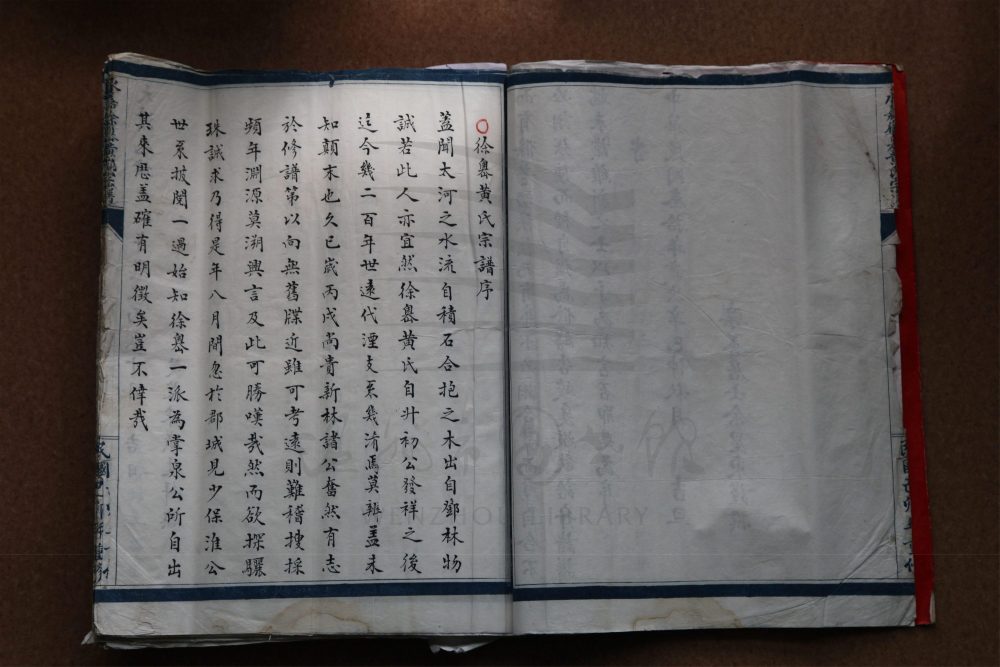 徐岙黃氏宗譜序
蓋聞太河之水流自積石合抱之木出自鄧林物
誠若此人亦宜然徐岙黃氏自升初公發祥之後
迄今幾二百年世遠代湮支系幾淆焉莫辨蓋未
知顛末也久已歲丙戌尚貴新林諸公奮然有志
於修譜第以向無舊牒近雖可考遠則難稽搜採
頻年淵源莫溯興言及此可勝嘆哉然而欲探驪
珠誠求乃得是年八月間忽於郡城見少保淮公
世系披閱一過始知徐岙一派為掌泉公所自出
其來歷盖確有明徵矣豈不偉哉
民國
WENZHOU LIBRARY